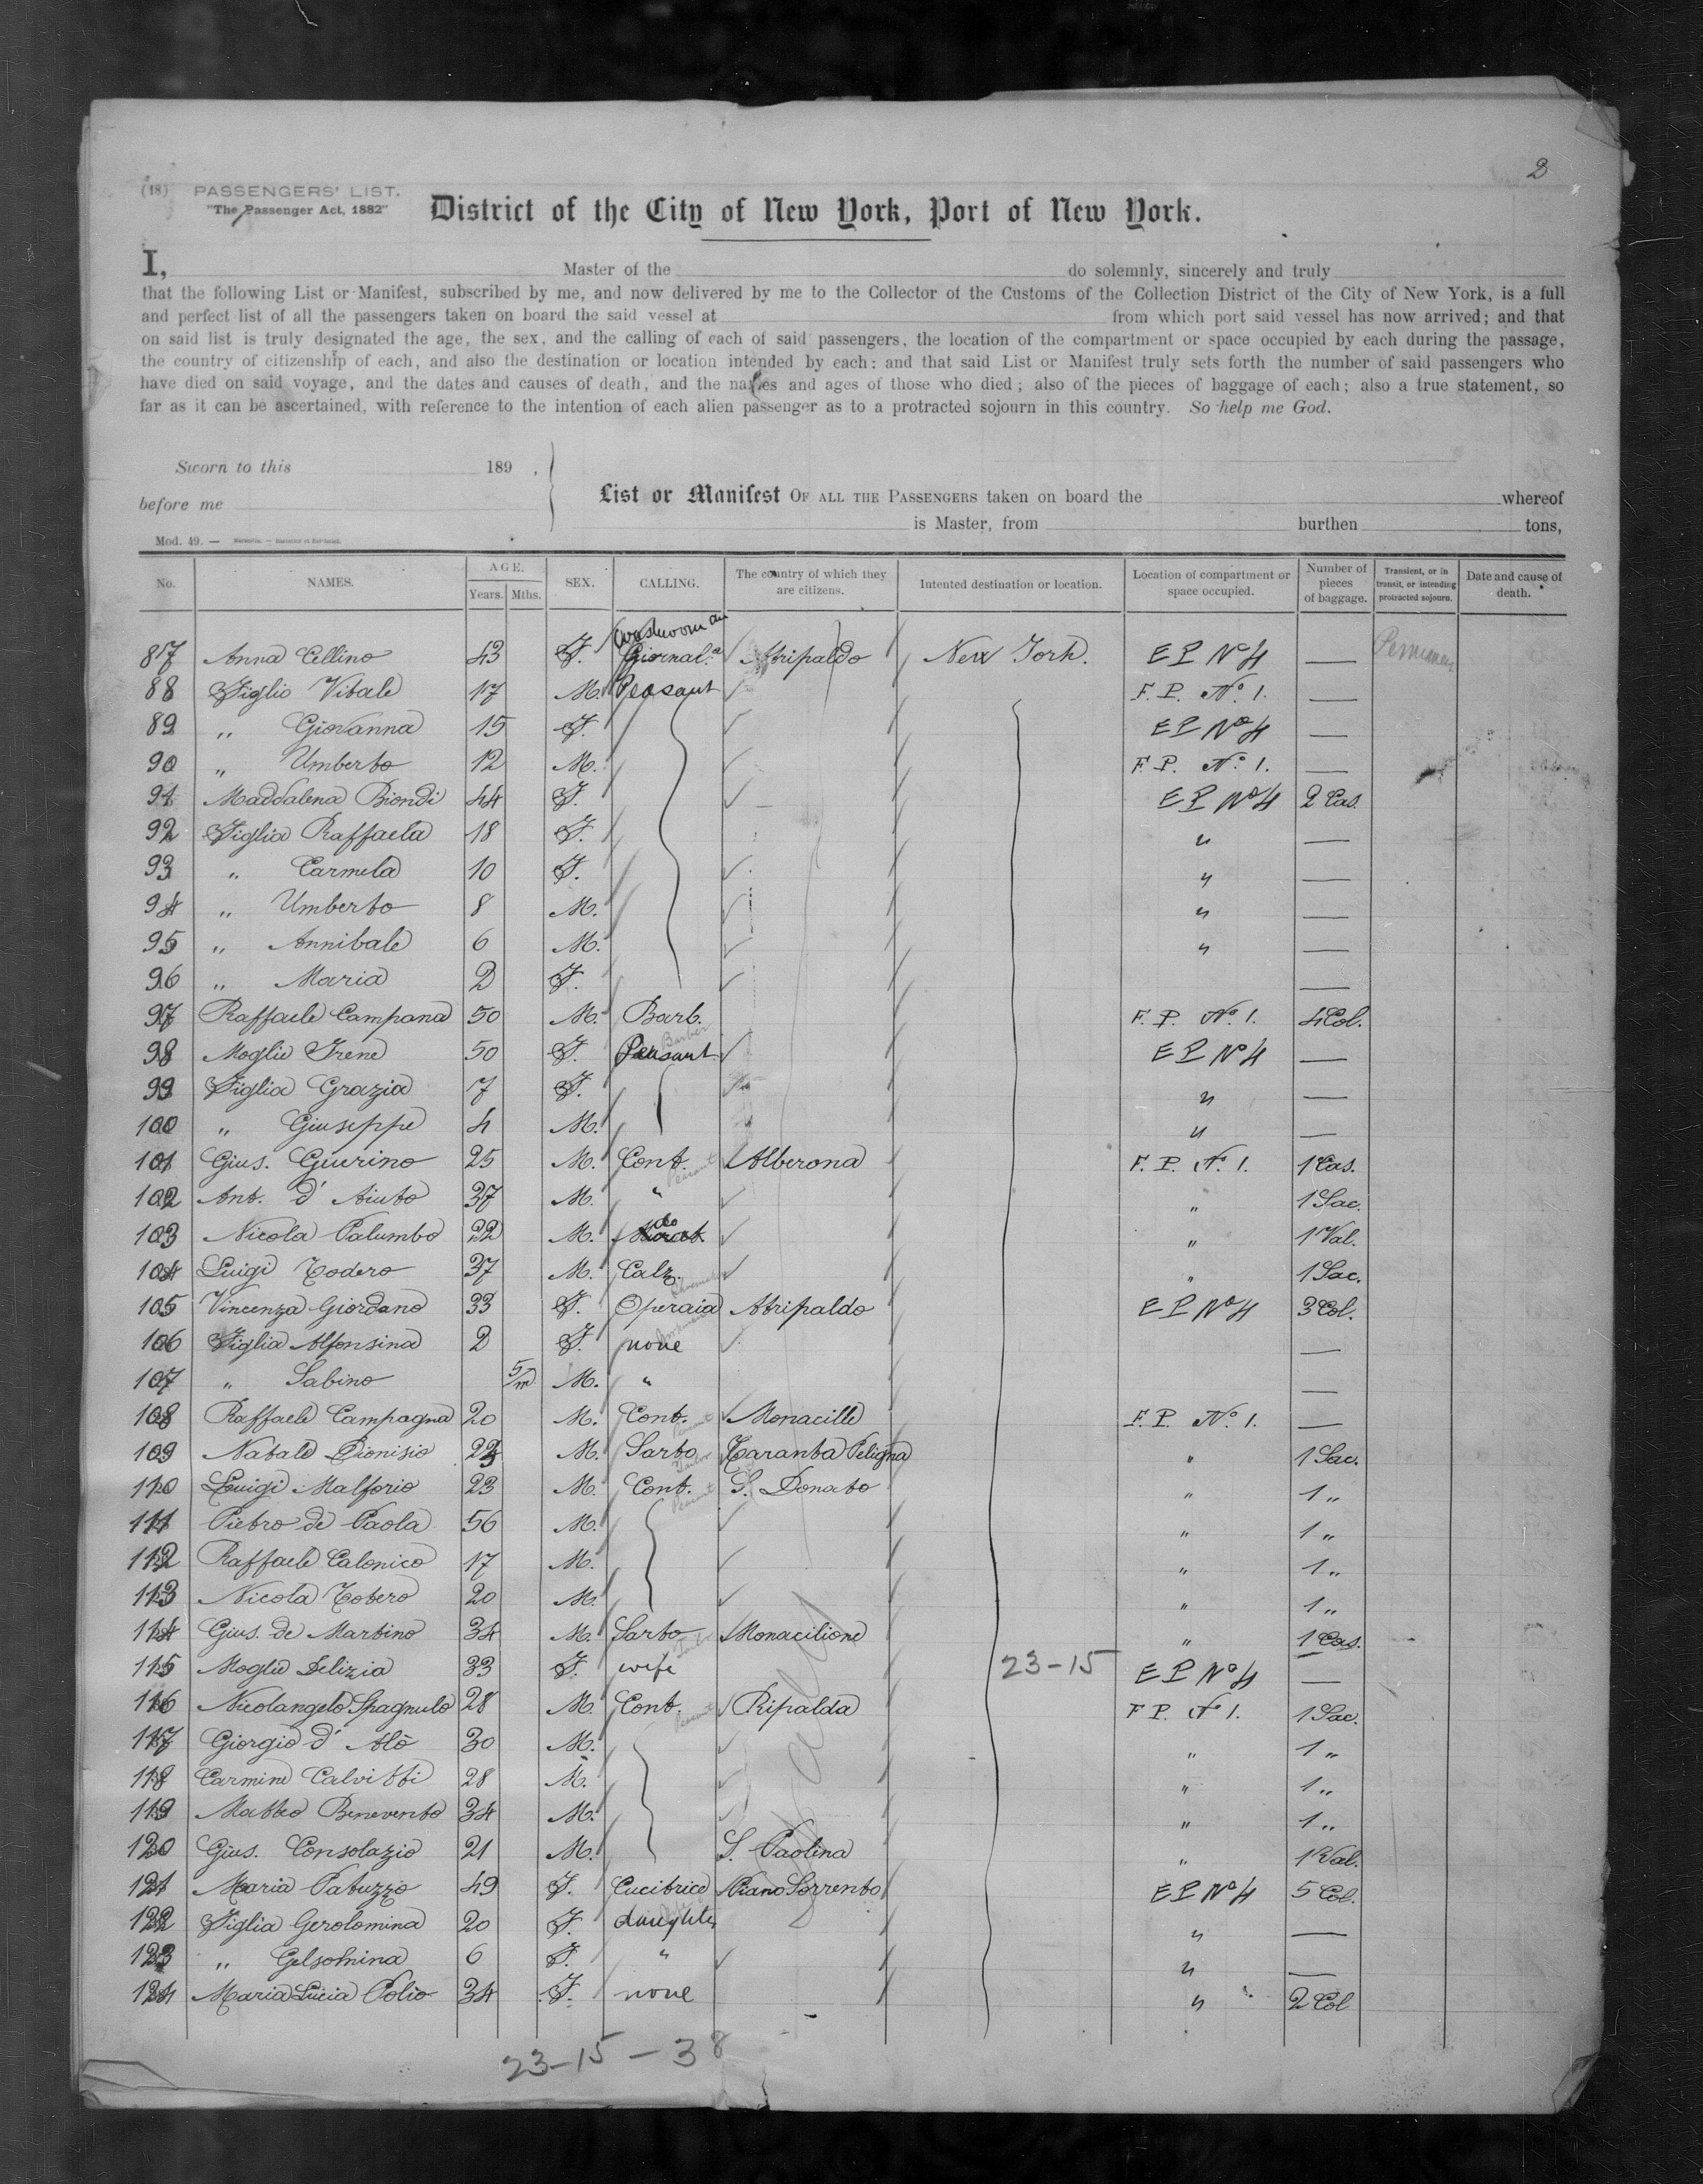 2
(18) PASSENGERS' LIST.
"The Passenger Act, 1882"
District of the City of New York, Port of New York.
I, Master of the do solemnly, sincerely and truly
that the following List or Manifest, subscribed by me, and now delivered by me to the Collector of the Customs of the Collection District of the City of New York, is a full
and perfect list of all the passengers taken on board the said vessel at from which port said vessel has now arrived; and that
on said list is truly designated the age, the sex, and the calling of each of said passengers, the location of the compartment or space occupied by each during the passage,
the country of citizenship of each, and also the destination or location intended by each: and that said List or Manifest truly sets forth the number of said passengers who
have died on said voyage, and the dates and causes of death, and the names and ages of those who died; also of the pieces of baggage of each; also a true statement, so
far as it can be ascertained, with reference to the intention of each alien passenger as to a protracted sojourn in this country. So help me God.
Sworn to this 189 .
before me
List or Manifest OF ALL THE PASSENGERS taken on board the whereof
is Master, from burthen tons,
Mod. 49. —
No. NAMES. AGE. Years. Mths. SEX. CALLING. The country of which they are citizens. Intented destination or location. Location of compartment or space occupied. Number of pieces of baggage. Transient, or in transit, or intending protracted sojourn. Date and cause of death.
Washwoman
87 Anna Cellino 43 F. Giornal.a Atripaldo New York. E P No 4 —
88 Figlio Vitale 17 M. Peasant F. P. No. 1. —
89 " Giovanna 15 F. E P No 4 —
90 " Umberto 12 M. F. P. No. 1. —
91 Maddalena Biondi 44 F. E P No 4 2 Cas.
92 Figlia Raffaela 18 F. " —
93 " Carmela 10 F. " —
94 " Umberto 8 M. " —
95 " Annibale 6 M. " —
96 " Maria 2 F. —
97 Raffaele Campana 50 M. Barb. F. P. No. 1. 4 Col.
Barber
98 Moglie Irene 50 F. Peasant E P No 4 —
99 Figlia Grazia 7 F. " —
100 " Giuseppe 4 M. " —
101 Gius. Guerino 25 M. Cont. Alberona F. P. N. 1. 1 Cas.
Peasant
102 Ant. d' Aiuto 37 M. " " 1 Sac.
103 Nicola Palumbo 22 M. do " 1 Val.
104 Luigi Todero 37 M. Calz. " 1 Sac.
105 Vincenza Giordano 33 F. Operaia Atripaldo E P No 4 3 Col.
106 Figlia Alfonsina 2 F. none —
107 " Sabino 5/m M. " —
108 Raffaele Campagna 20 M. Cont. Monacille F. P. No. 1. —
109 Natale Dionisio 23 M. Sarto Taranta Peligna " 1 Sac.
110 Luigi Malforio 23 M. Cont. S. Donato " 1 "
Peasant
111 Pietro de Paola 56 M. " 1 "
112 Raffaele Calonico 17 M. " 1 "
113 Nicola Tobero 20 M. " 1 "
114 Gius. de Martino 34 M. Sarto Monacilione " 1 Cas.
115 Moglie Delizia 33 F. wife 23-15 E P No 4 —
116 Nicolangelo Spagnulo 28 M. Cont. Ripalda F P. N 1. 1 Sac.
Peasant
117 Giorgio d' Alò 30 M. " 1 "
118 Carmine Calvitti 28 M. " 1 "
119 Matteo Benevento 34 M. " 1 "
120 Gius. Consolazio 21 M. S. Paolina " 1 Val.
121 Maria Patuzzo 49 F. Cucitrice Piano Sorrento E P No 4 5 Col.
122 Figlia Gerolomina 20 F. daughter " —
123 " Gelsomina 6 F. " " —
124 Maria Lucia Polio 34 F. none " 2 Col
23-15-38